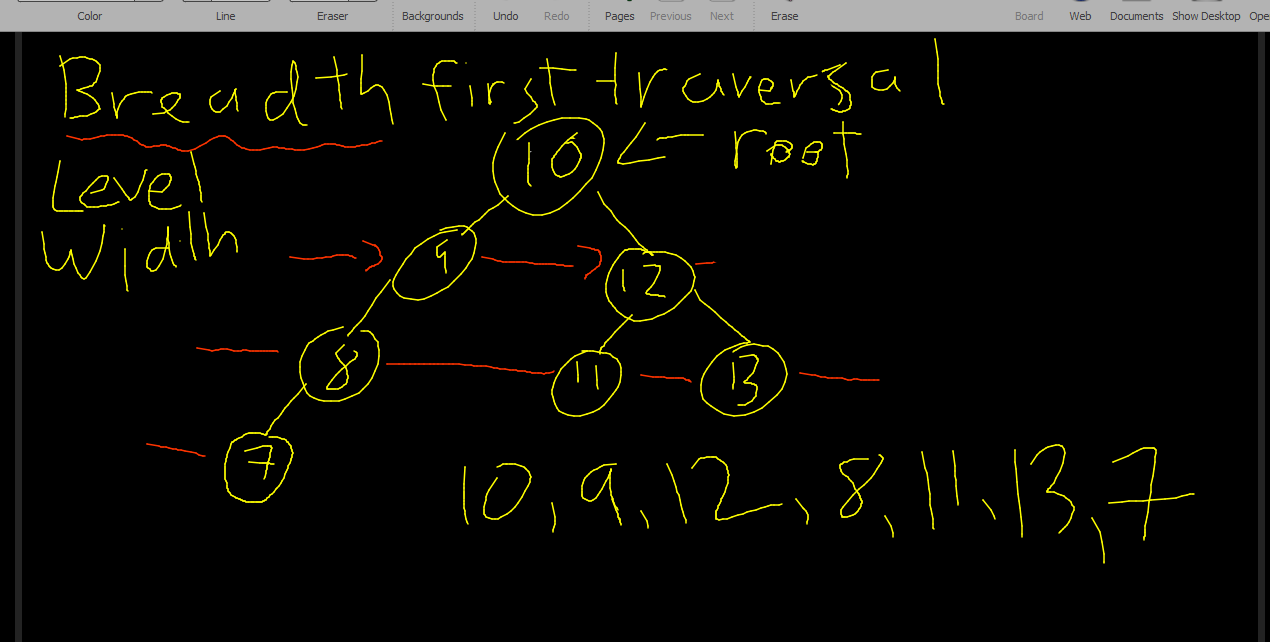 Color Line Eraser Backgrounds Undo Redo Pages Previous Next Erase Board Web Documents Show Desktop Ope
Breadth first traversal
10 <- root
Level
Width
9
12
8
11
13
7
10, 9, 12, 8, 11, 13, 7